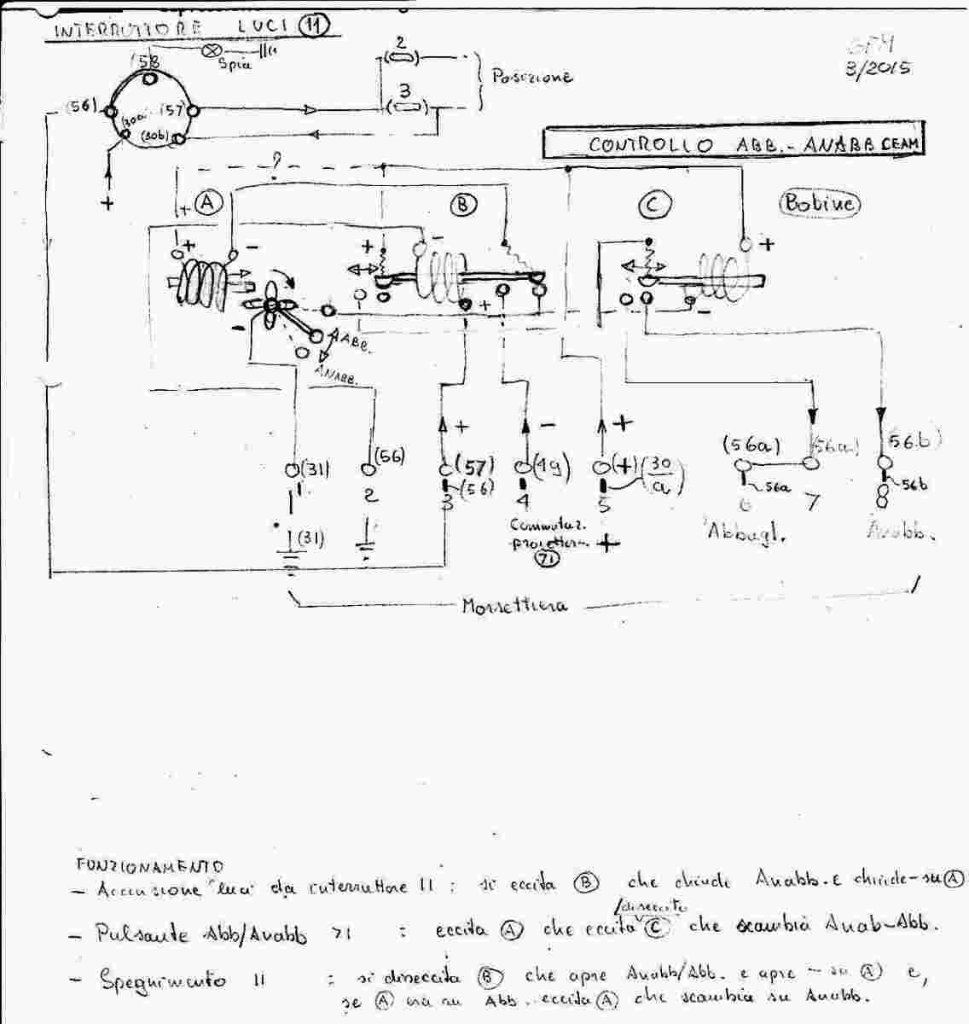 INTERRUTTORE LUCI 11
GFM
3/2015
(58)
Spia
2
3
Posizione
(56)
(30a)
(57)
(30b)
+
CONTROLLO ABB.- ANABB CEAM
?
A
B
C
Bobine
+
+ -
+ -
+
- +
-
-
AABB.
ANABB.
+ - +
(31)
(56)
(57)
(56)
(49)
(+) (30/a)
(56a)
(56a)
(56b)
56a
56b
1 2 3 4 5 6 7 8
(31)
Commutaz.
proiettori +
71
Abbagl.
Anabb.
Morsettiera
FUNZIONAMENTO
- Accensione "luci" da interruttore 11 : si eccita B che chiude Anabb. e chiude - su A
/diseccita
- Pulsante Abb/Anabb 71 : eccita A che eccita C che scambia Anab-Abb.
- Spegnimento 11 : si diseccita B che apre Anabb/Abb. e apre - su A e,
se A era su Abb. eccita A che scambia su Anabb.